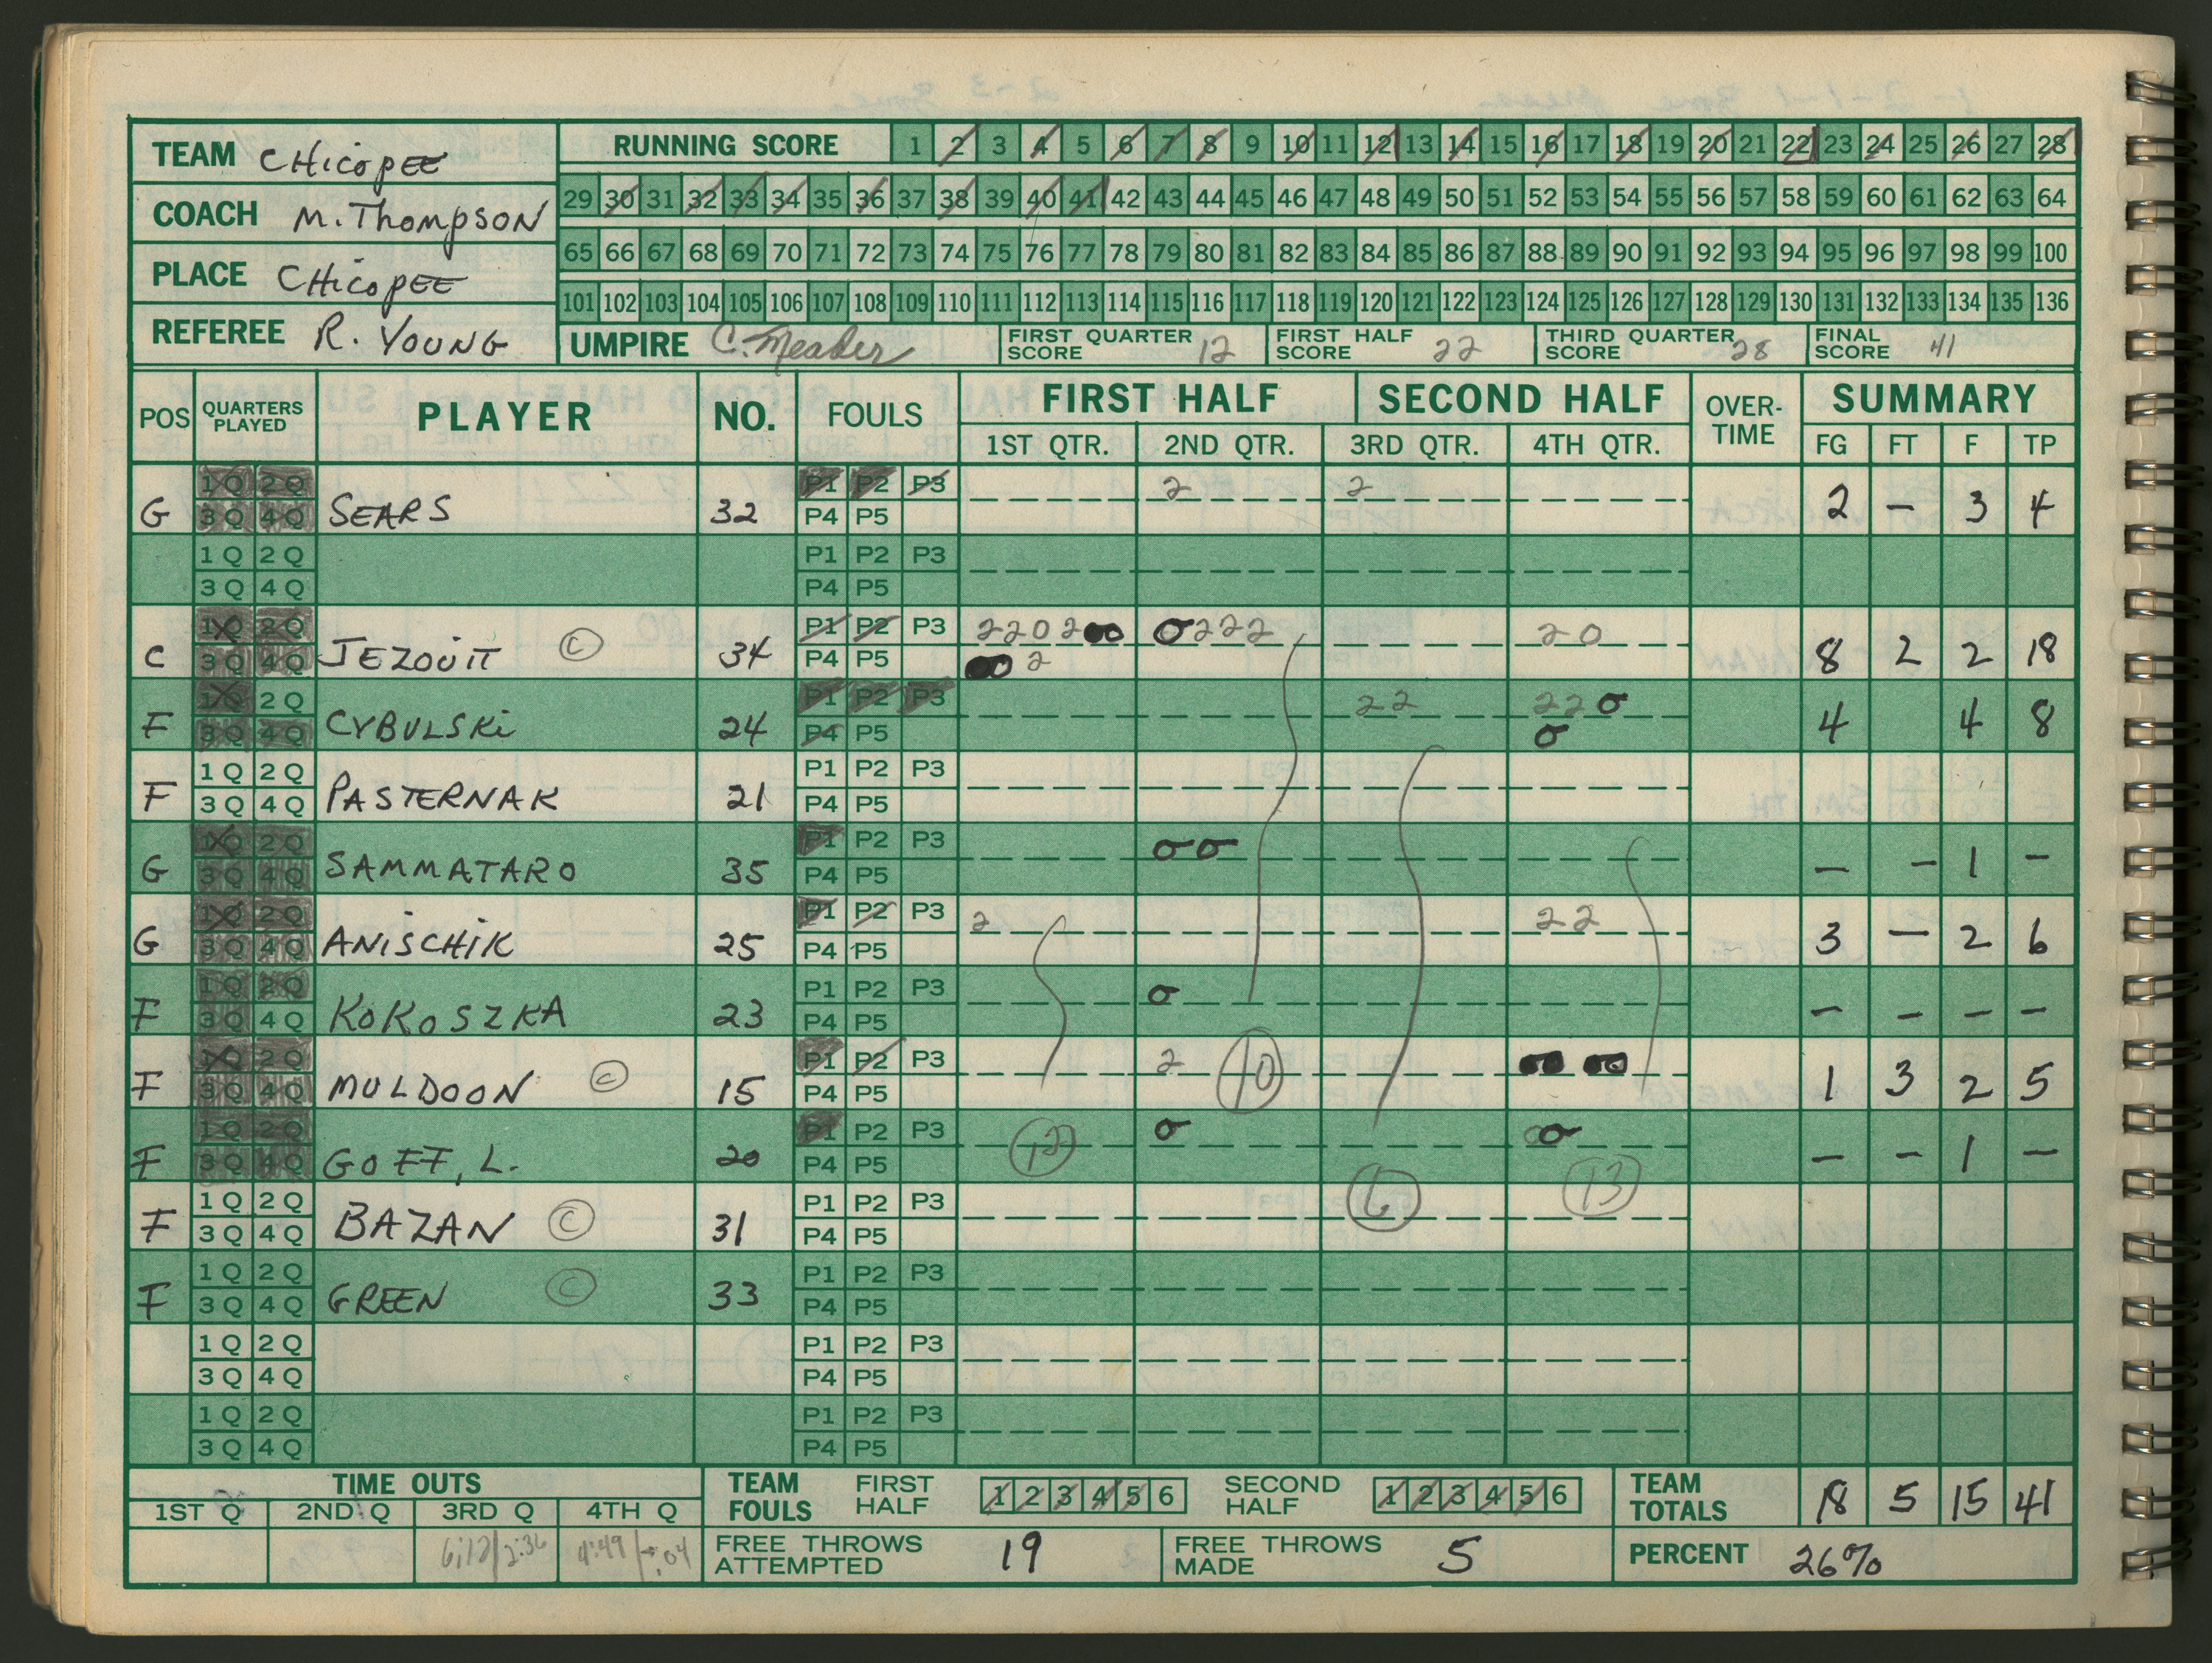 TEAM CHicopEE
COACH M. Thompson
PLACE CHicopEE
REFEREE R. YOUNG
RUNNING SCORE 1 2 3 4 5 6 7 8 9 10 11 12 13 14 15 16 17 18 19 20 21 22 23 24 25 26 27 28
29 30 31 32 33 34 35 36 37 38 39 40 41 42 43 44 45 46 47 48 49 50 51 52 53 54 55 56 57 58 59 60 61 62 63 64
65 66 67 68 69 70 71 72 73 74 75 76 77 78 79 80 81 82 83 84 85 86 87 88 89 90 91 92 93 94 95 96 97 98 99 100
101 102 103 104 105 106 107 108 109 110 111 112 113 114 115 116 117 118 119 120 121 122 123 124 125 126 127 128 129 130 131 132 133 134 135 136
UMPIRE C. Meader FIRST QUARTER SCORE 12 FIRST HALF SCORE 22 THIRD QUARTER SCORE 28 FINAL SCORE 41
POS QUARTERS PLAYED PLAYER NO. FOULS FIRST HALF SECOND HALF OVER-TIME SUMMARY
1ST QTR. 2ND QTR. 3RD QTR. 4TH QTR. FG FT F TP
1Q 2Q P1 P2 P3 2 2
G 3Q 4Q SEARS 32 P4 P5 2 – 3 4
1Q 2Q P1 P2 P3
3Q 4Q P4 P5
1Q 2Q P1 P2 P3 2 2 0 2 0 0 0 2 2 2 2 0
C 3Q 4Q JEZOUIT C 34 P4 P5 0 0 2 8 2 2 18
1Q 2Q P1 P2 P3 2 2 2 2 0
F 3Q 4Q CYBULSKi 24 P4 P5 0 4 4 8
1Q 2Q P1 P2 P3
F 3Q 4Q PASTERNAK 21 P4 P5
1Q 2Q P1 P2 P3 0 0
G 3Q 4Q SAMMATARO 35 P4 P5 – – 1 –
1Q 2Q P1 P2 P3 2 2 2
G 3Q 4Q ANiSCHiK 25 P4 P5 3 – 2 6
1Q 2Q P1 P2 P3 0
F 3Q 4Q KOKOSZKA 23 P4 P5 – – – –
1Q 2Q P1 P2 P3 2 10 0 0 0 0
F 3Q 4Q MULDOON C 15 P4 P5 1 3 2 5
1Q 2Q P1 P2 P3 12 0 0 0
F 3Q 4Q GOFF, L. 20 P4 P5 – – 1 –
1Q 2Q P1 P2 P3 6 13
F 3Q 4Q BAZAN C 31 P4 P5
1Q 2Q P1 P2 P3
F 3Q 4Q GREEN C 33 P4 P5
1Q 2Q P1 P2 P3
3Q 4Q P4 P5
1Q 2Q P1 P2 P3
3Q 4Q P4 P5
TIME OUTS
1ST Q 2ND Q 3RD Q 4TH Q
6:12 2:36 4:49 :04
TEAM FOULS FIRST HALF 1 2 3 4 5 6 SECOND HALF 1 2 3 4 5 6 TEAM TOTALS 18 5 15 41
FREE THROWS ATTEMPTED 19 FREE THROWS MADE 5 PERCENT 26%